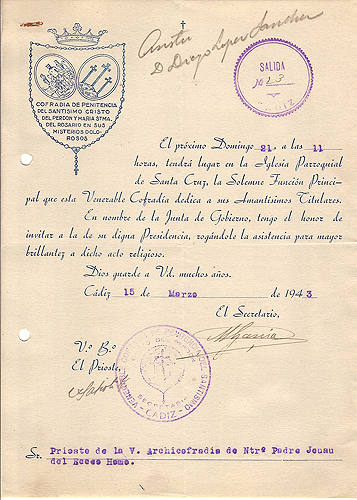 D Diego Lopez Sanchez
SALIDA
Nº 23
CADIZ
COFRADIA DE PENITENCIA
DEL SANTISIMO CRISTO
DEL PERDON Y MARIA STMA.
DEL ROSARIO EN SUS
MISTERIOS DOLO-
ROSOS
El próximo Domingo 21, a las 11
horas, tendrá lugar en la Iglesia Parroquial
de Santa Cruz, la Solemne Función Princi-
pal que esta Venerable Cofradía dedica a sus Amantísimos Titulares.
En nombre de la Junta de Gobierno, tengo el honor de
invitar a la de su digna Presidencia, rogándole la asistencia para mayor
brillantez a dicho acto religioso.
Dios guarde a Vd. muchos años.
Cádiz 15 de Marzo de 1943
El Secretario,
MGarcia
V.º B.º
El Prioste,
SECRETARIA
-CADIZ-
Sr. Prioste de la V. Archicofradia de Ntrº Padre Jesus
del Ecce Homo.